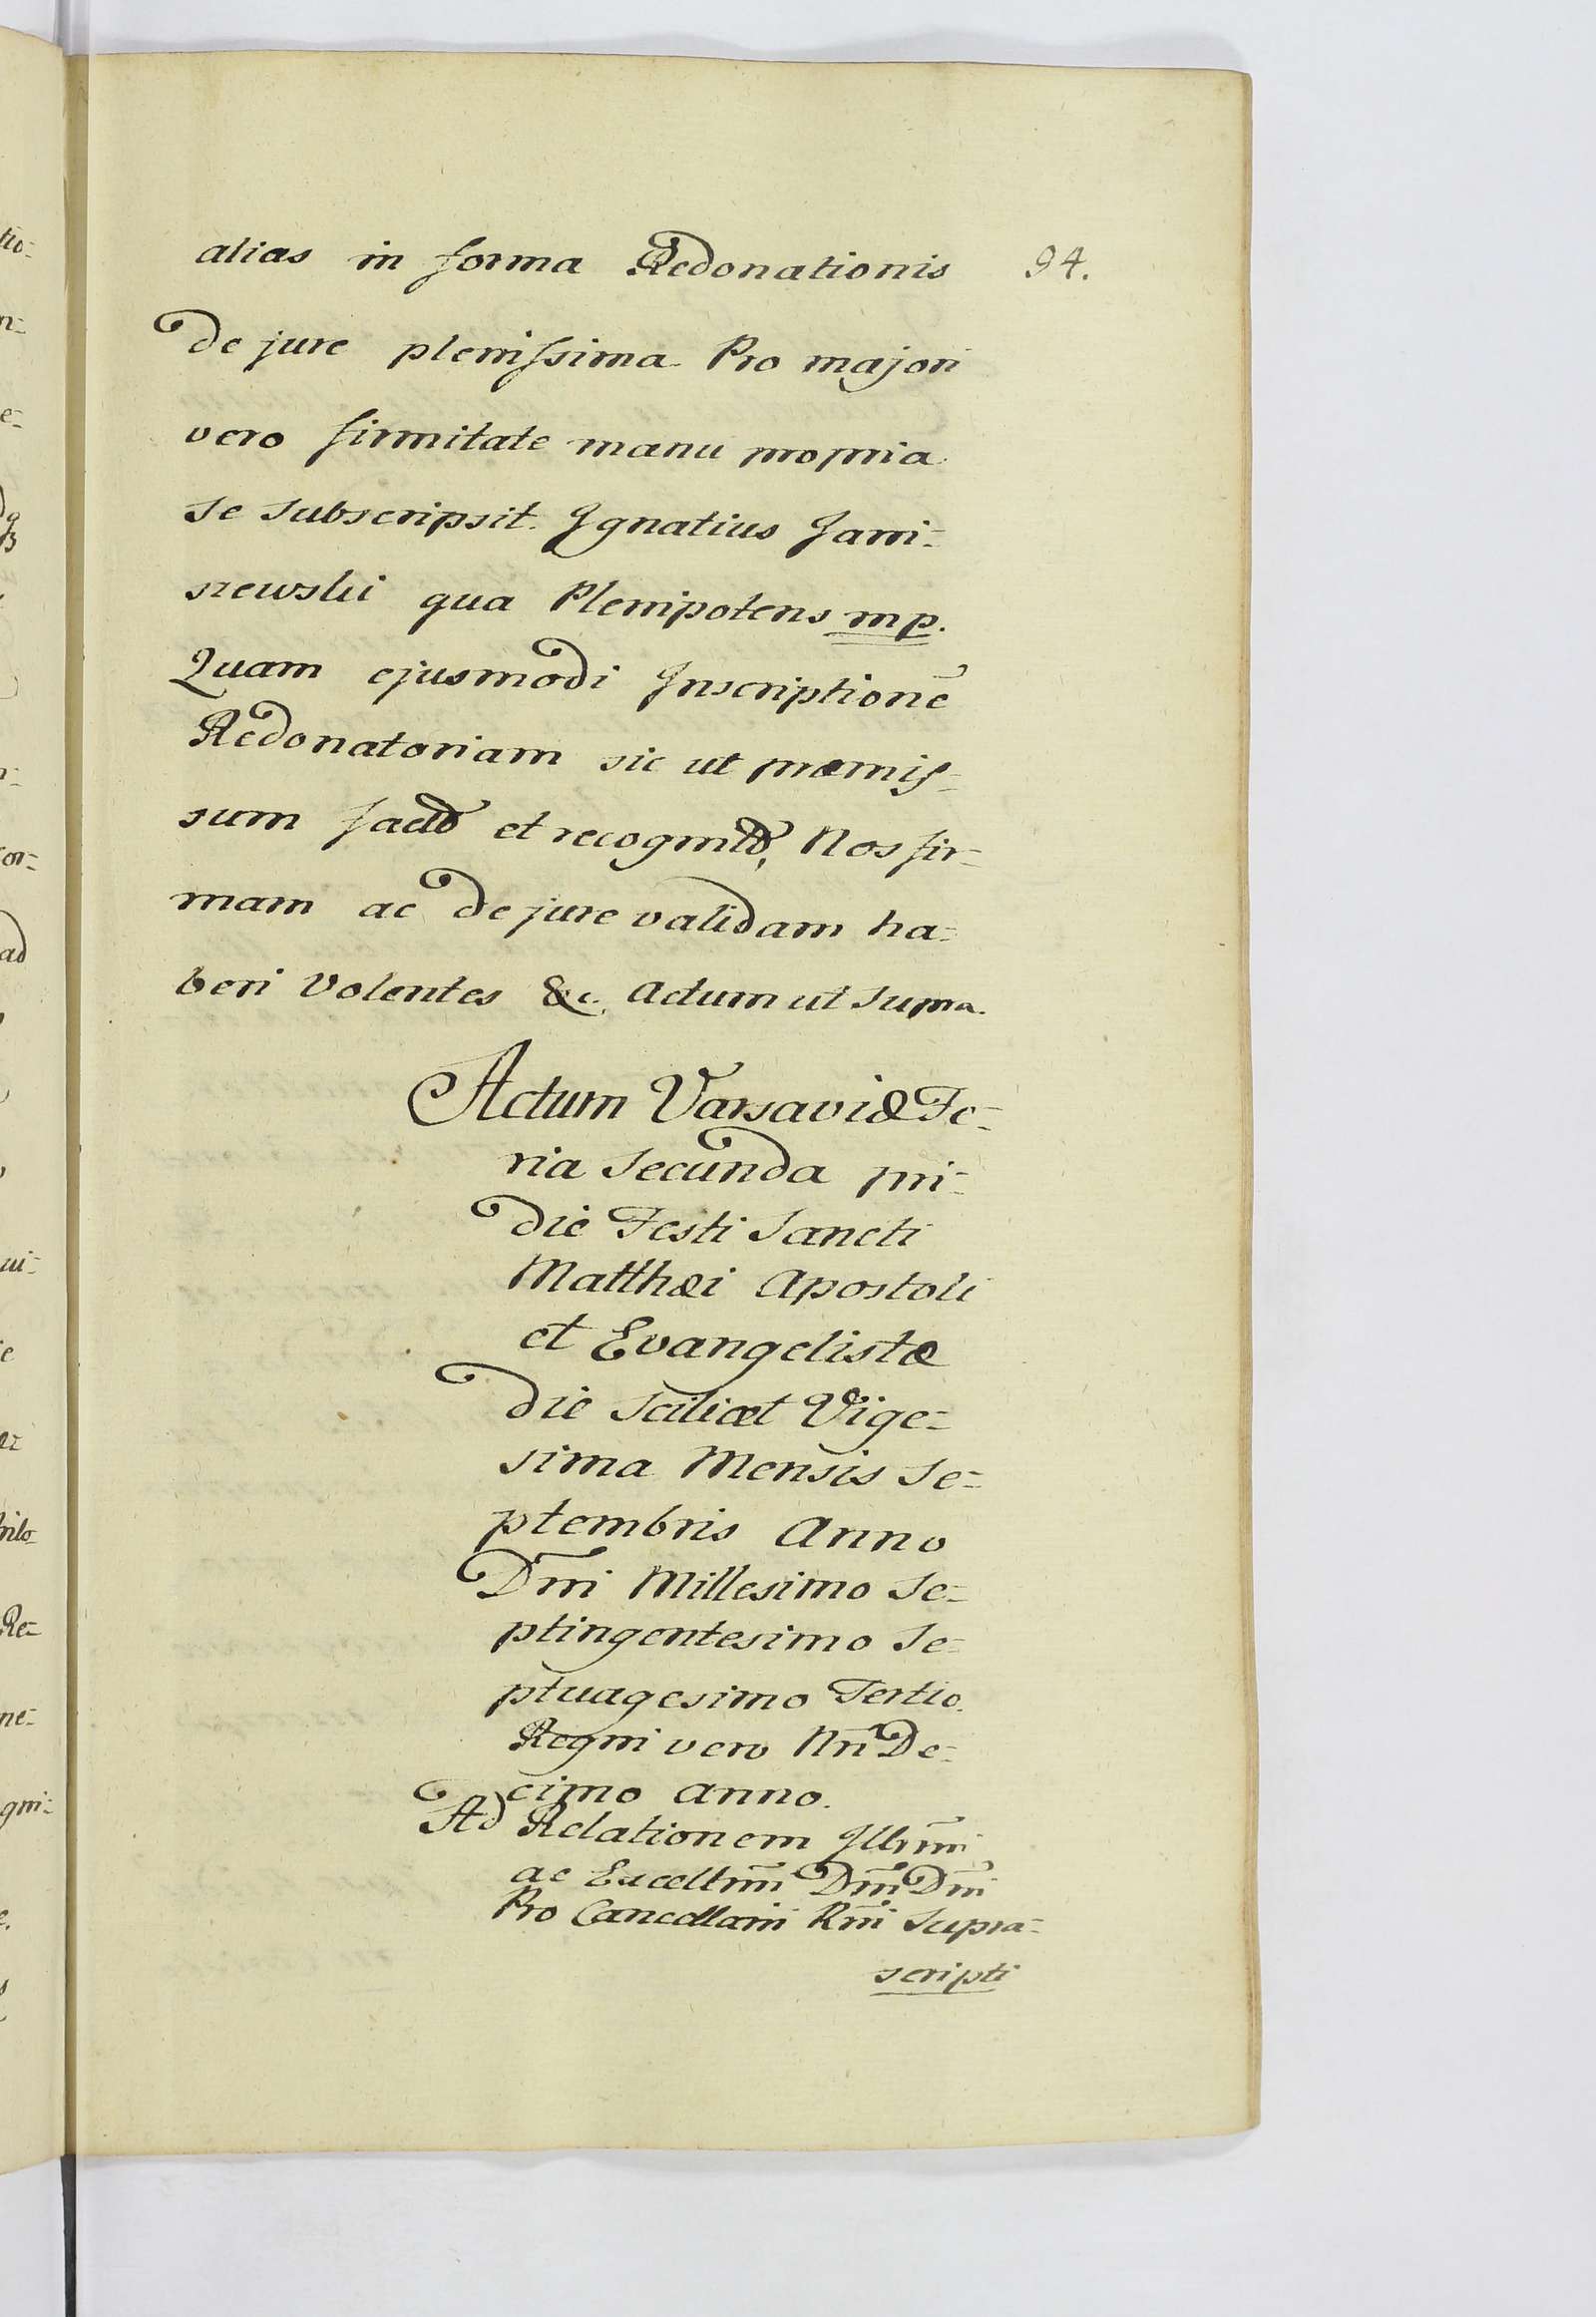 alias in forma Redonationis 94.
de jure plenissima Pro majori
vero firmitate manu propria
se subscripsit. Ignatius Jani-
szewski qua Plenipotens mp.
Quam ejusmodi Inscriptionē
Redonatoriam sic ut præmis-
sum
et recognitã, Nos fir-
mam ac de jure validam ha-
beri Volentes &c. Actum ut supra.
Actum Varsaviæ Fe-
ria Secunda pri-
die Festi Sancti
Matthæi Apostoli
et Evangelistæ
die scilicet Vige-
sima Mensis Se-
ptembris Anno
Dni Millesimo Se-
ptingentesimo Se-
ptuagesimo Tertio.
Regni vero Nri De-
cimo Anno.
Ad Relationem Illrmi
ac Excellmi Dni Dni
Pro Cancellarii Rni Supra-
scripti